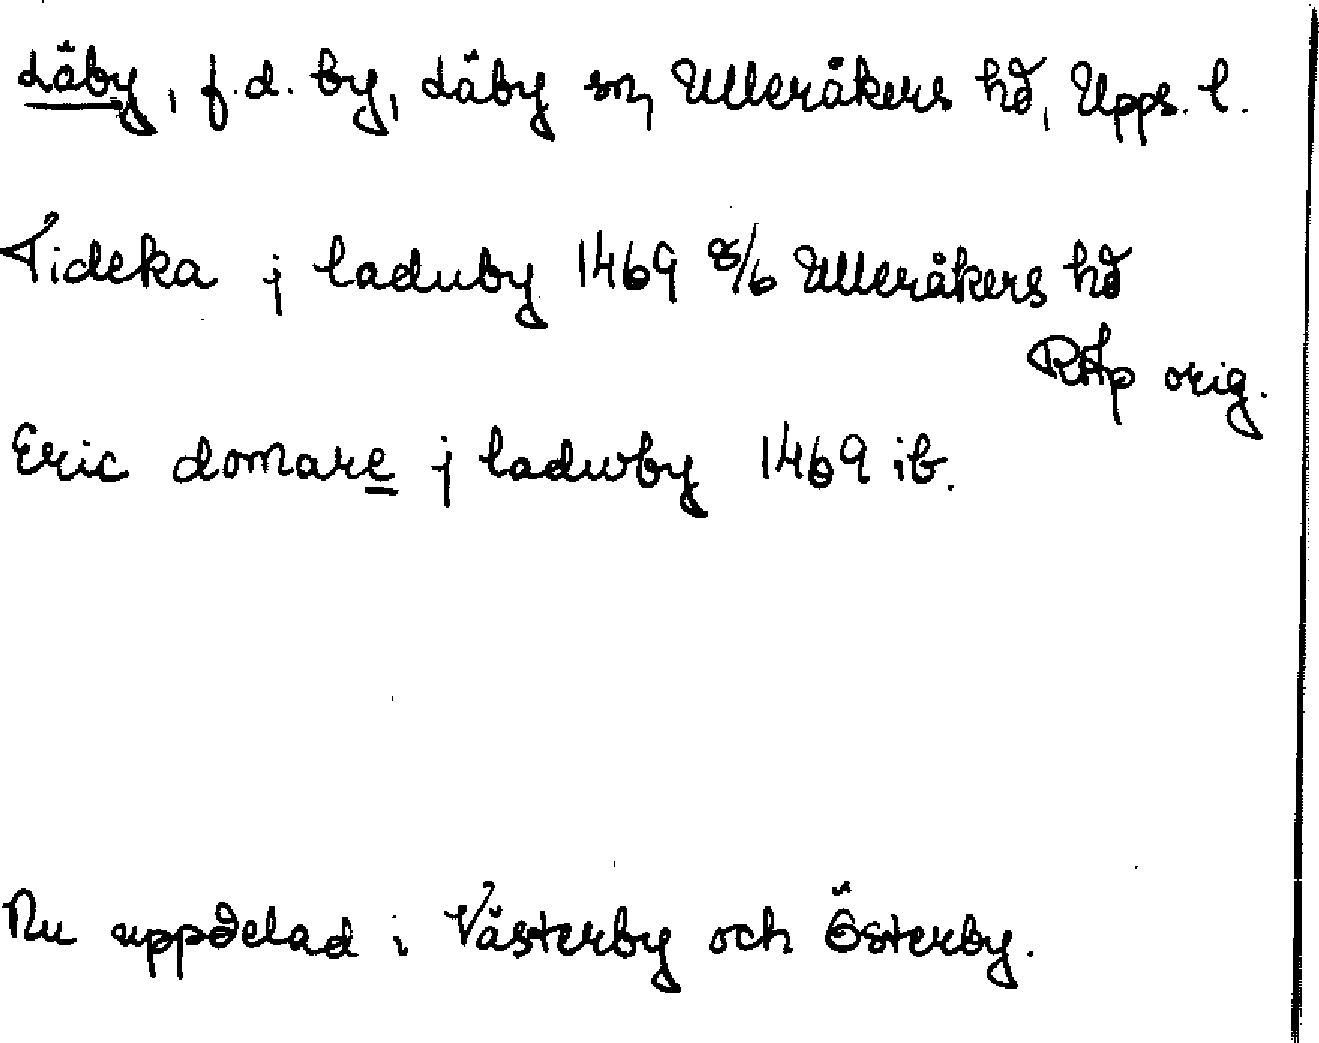 Läby, f.d. by, Läby sn, Ulleråkers hd, Upps. l.
Tideka j laduby 1469 8/6 Ulleråkers hd
RAp orig.
Eric domare j ladwby 1469 ib.
Nu uppdelad i Västerby och Österby.